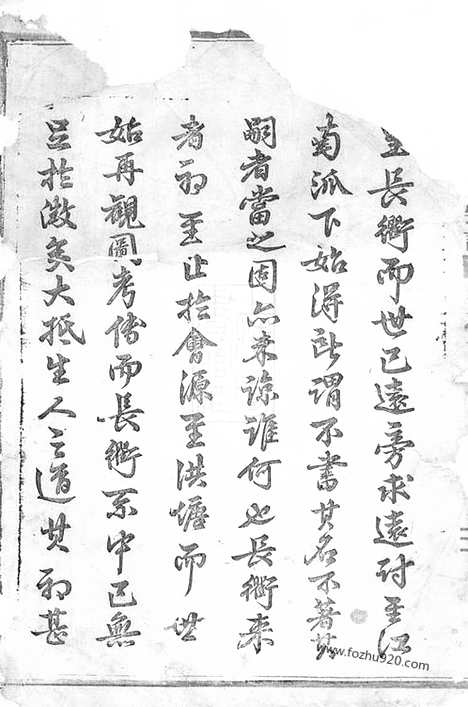 至長衖而世已遠旁求遠討至江
南派下始得所謂不書其名不著其
嗣者當之因亦未諗誰何也長衖來
者初至止於會源至洪塘而世
始再觀圖考傳而長衖系中已無
足於徵矣大抵生人之道其初甚
www.fozhu920.com